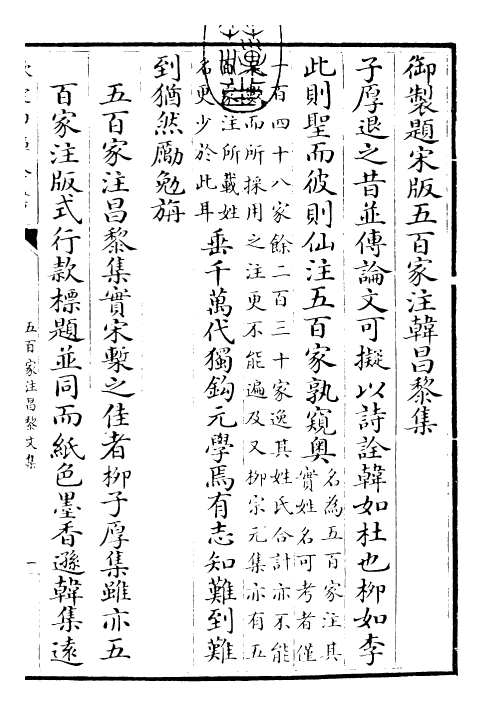 御製題宋版五百家注韓昌黎集
子厚退之昔並傳論文可擬以詩詮韓如杜也柳如李
此則聖而彼則仙注五百家孰窺奥
名為五百家注其
實姓名可考者僅
一百四十八家餘二百三十家逸其姓氏合計亦不能
而所採用之注更不能遍及又柳宗元集亦有五
家注所載姓
名更少於此耳
垂千萬代獨鈎元學焉有志知難到難
到猶然勵勉旃
五百家注昌黎集實宋槧之佳者柳子厚集雖亦五
百家注版式行款標題並同而紙色墨香遜韓集遠
五百家注昌黎文集
一